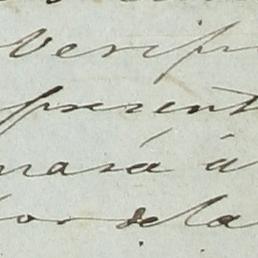 Verifi
present
nará á
por dela